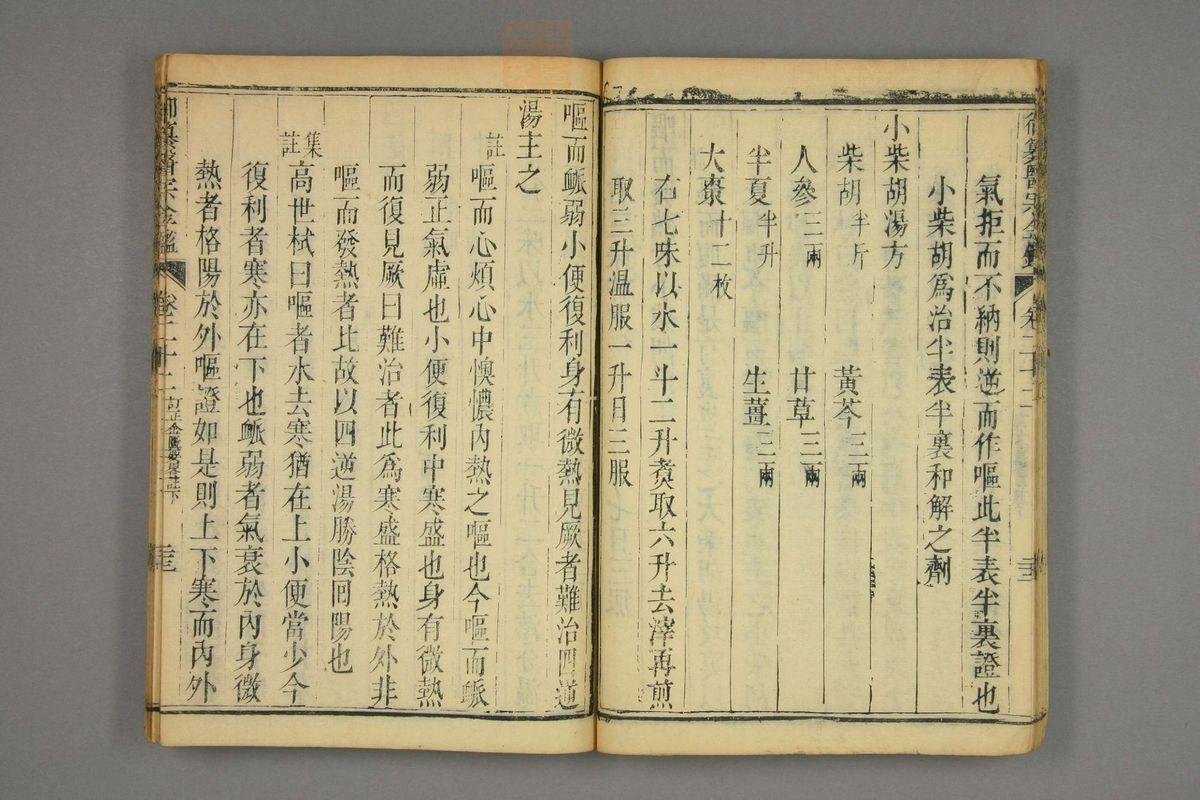 氣拒而不納則逆而作嘔此半表半裏證也
小柴胡爲治半表半裏和解之劑
小柴胡湯方
柴胡半斤 黃芩三兩
人參三兩 甘草三兩
半夏半升 生薑三兩
大棗十二枚
右七味以水一斗二升煑取六升去滓再煎
取三升溫服一升日三服
嘔而脈弱小便復利身有微熱見厥者難治四逆
湯主之
註 嘔而心煩心中懊憹內熱之嘔也今嘔而脈
弱正氣虛也小便復利中寒盛也身有微熱
而復見厥曰難治者此爲寒盛格熱於外非
嘔而發熱者比故以四逆湯勝陰回陽也
集註 高世栻曰嘔者水去寒猶在上小便當少今
復利者寒亦在下也脈弱者氣衰於內身微
熱者格陽於外嘔證如是則上下寒而內外
御纂醫宗金鑑 卷二十二